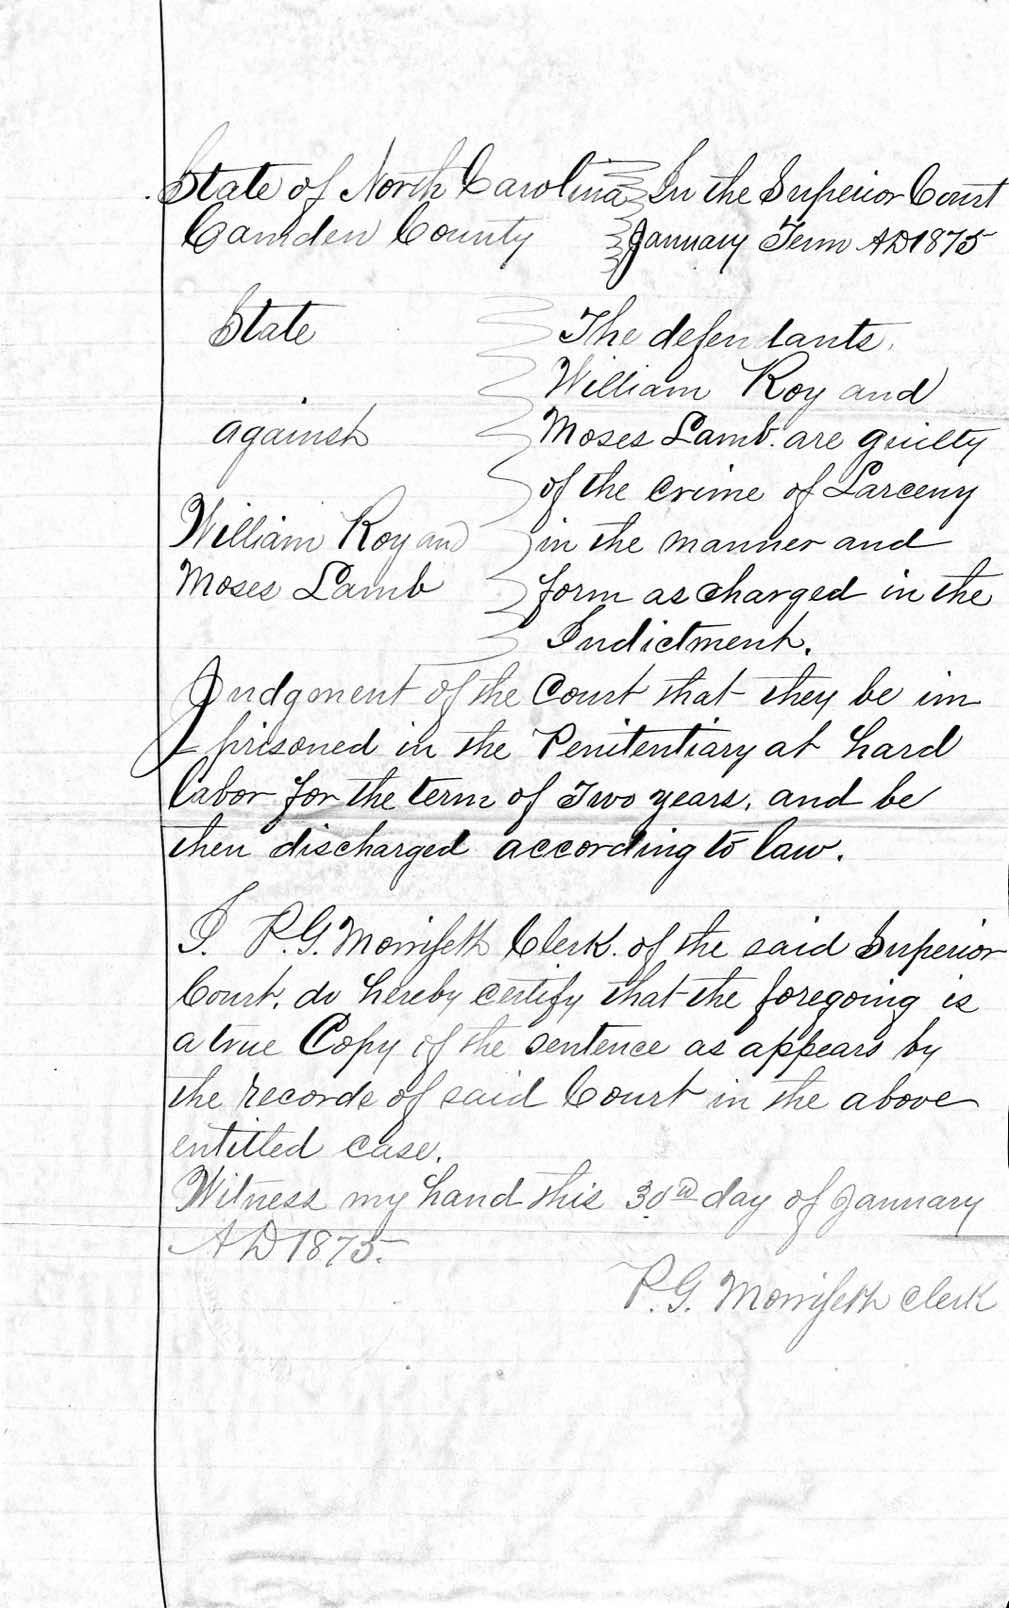 State of North Carolina In the Superior Court
Camden County January Term AD 1875
State The defendants,
William Roy and
against Moses Lamb. are guilty
of the crime of Larceny
William Roy and in the manner and
Moses Lamb form as charged in the
Indictment.
Judgment of the Court that they be im
prisoned in the Penitentiary at hard
labor for the term of Two years, and be
then discharged according to law.
I. P.G. Morrisett Clerk. of the said Superior
Court. do hereby certify that the foregoing is
a true Copy of the sentence as appears by
the records of said Court in the above
entitled case.
Witness my hand this 30th day of January
AD 1875.
P.G. Morrisett Clerk